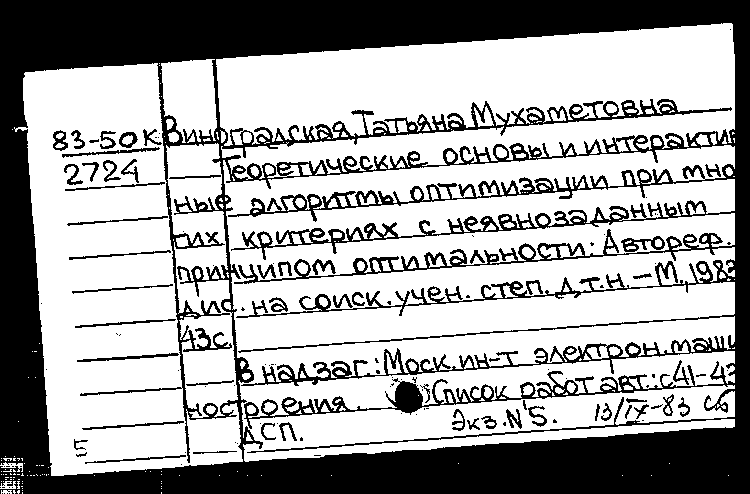 83-50к Виноградская, Татьяна Мухаметовна
2724 Теоретические основы и интерактив
ные алгоритмы оптимизации при мно
гих критериях с неявнозаданным
принципом оптимальности: Автореф.
дис. на соиск. учен. степ. д.т.н. – М., 1983
43с.
В надзаг.: Моск. ин-т электрон. маши
ностроения. Список работ авт.: с41-43
ДСП. Экз. N5. 13/IX-83 сб
5